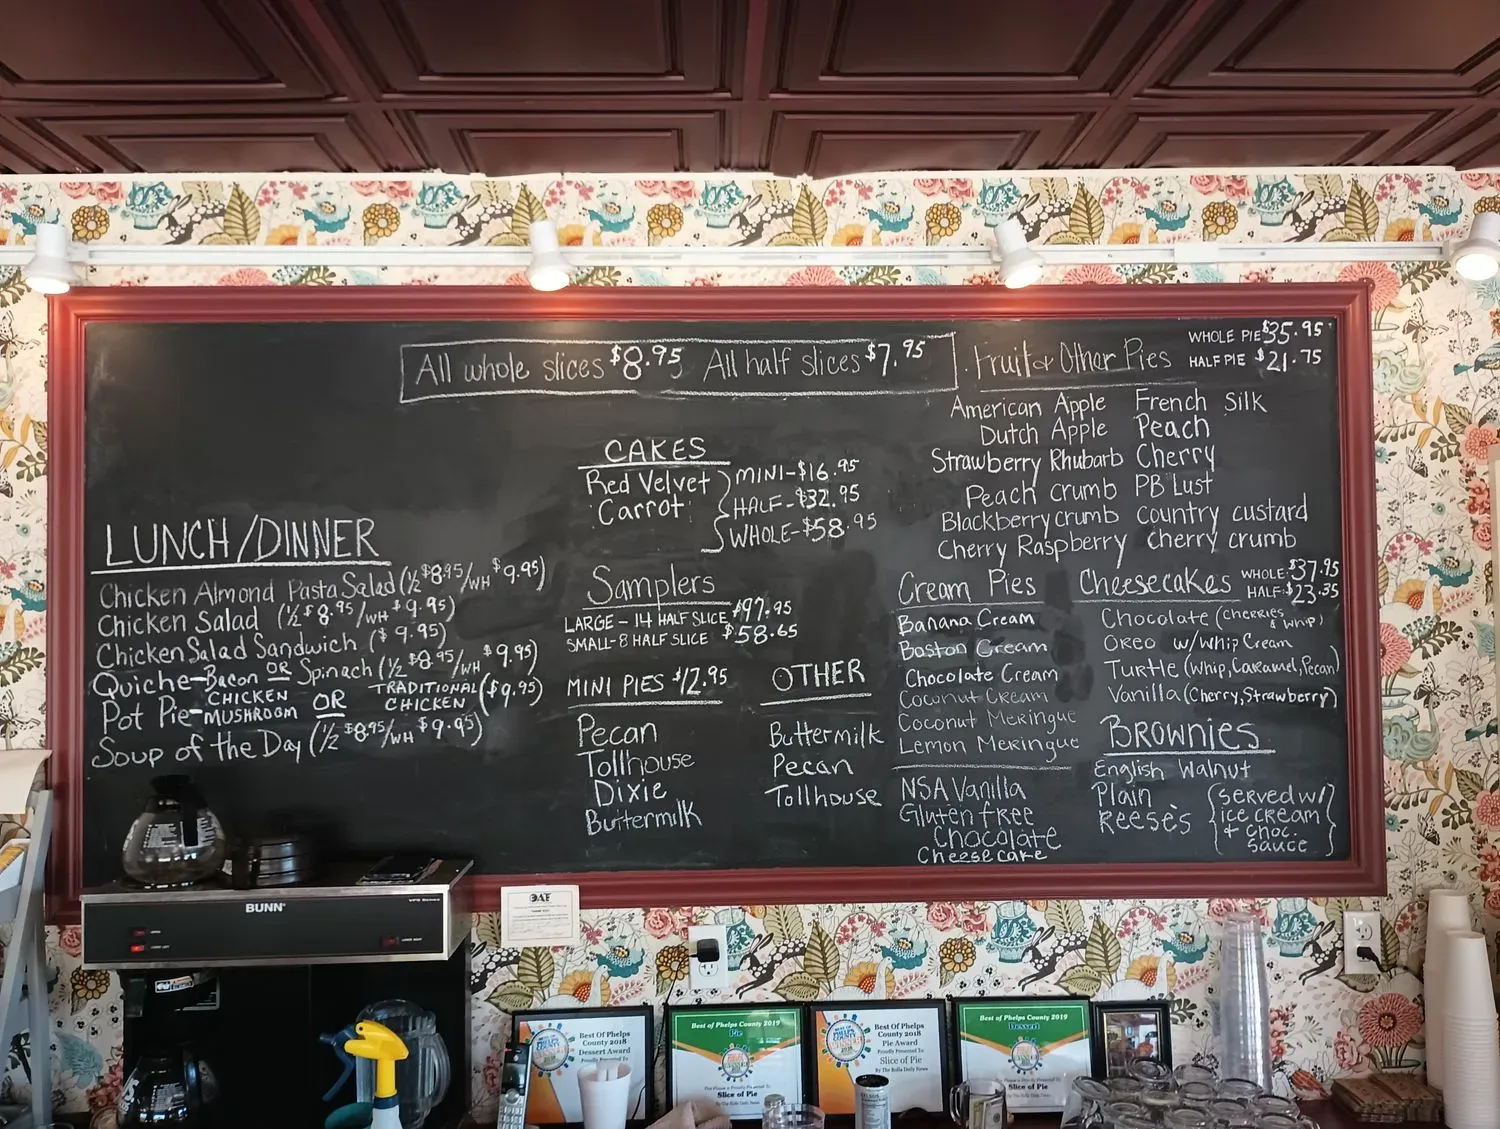 All whole slices $8.95 All half slices $7.95
LUNCH/DINNER
Chicken Almond Pasta Salad (1/2 $8.95/WH $9.95)
Chicken Salad (1/2 $8.95/WH $9.95)
Chicken Salad Sandwich ($9.95)
Quiche-Bacon OR Spinach (1/2 $8.95/WH $9.95)
Pot Pie-CHICKEN MUSHROOM OR TRADITIONAL CHICKEN ($9.95)
Soup of the Day (1/2 $8.95/WH $9.95)
CAKES
Red Velvet
Carrot
MINI-$16.95
HALF-$32.95
WHOLE-$58.95
Samplers
LARGE-14 HALF SLICE $97.95
SMALL-8 HALF SLICE $58.65
MINI PIES $12.95
Pecan
Tollhouse
Dixie
Buttermilk
OTHER
Buttermilk
Pecan
Tollhouse
Fruit or Other Pies
WHOLE PIE $35.95
HALF PIE $21.75
American Apple French Silk
Dutch Apple Peach
Strawberry Rhubarb Cherry
Peach crumb PB Lust
Blackberry crumb country custard
Cherry Raspberry cherry crumb
Cream Pies
Banana Cream
Boston Cream
Chocolate Cream
Coconut Cream
Coconut Meringue
Lemon Meringue
NSA Vanilla
Gluten free
Chocolate
Cheesecake
Cheesecakes
WHOLE: $37.95
HALF: $23.35
Chocolate (cherries & whip)
Oreo w/whip Cream
Turtle (Whip, Caramel, Pecan)
Vanilla (Cherry, Strawberry)
Brownies
English Walnut
Plain
Reese's
served w/
ice cream
+ choc.
sauce
BUNN
Best Of Phelps
County 2018
Dessert Award
Best of Phelps County 2019
Pie
Slice of Pie
Best Of Phelps
County 2018
Pie Award
Proudly Presented To
Slice of Pie
By The Rolla Daily News
Best of Phelps County 2019
Dessert
Slice of Pie